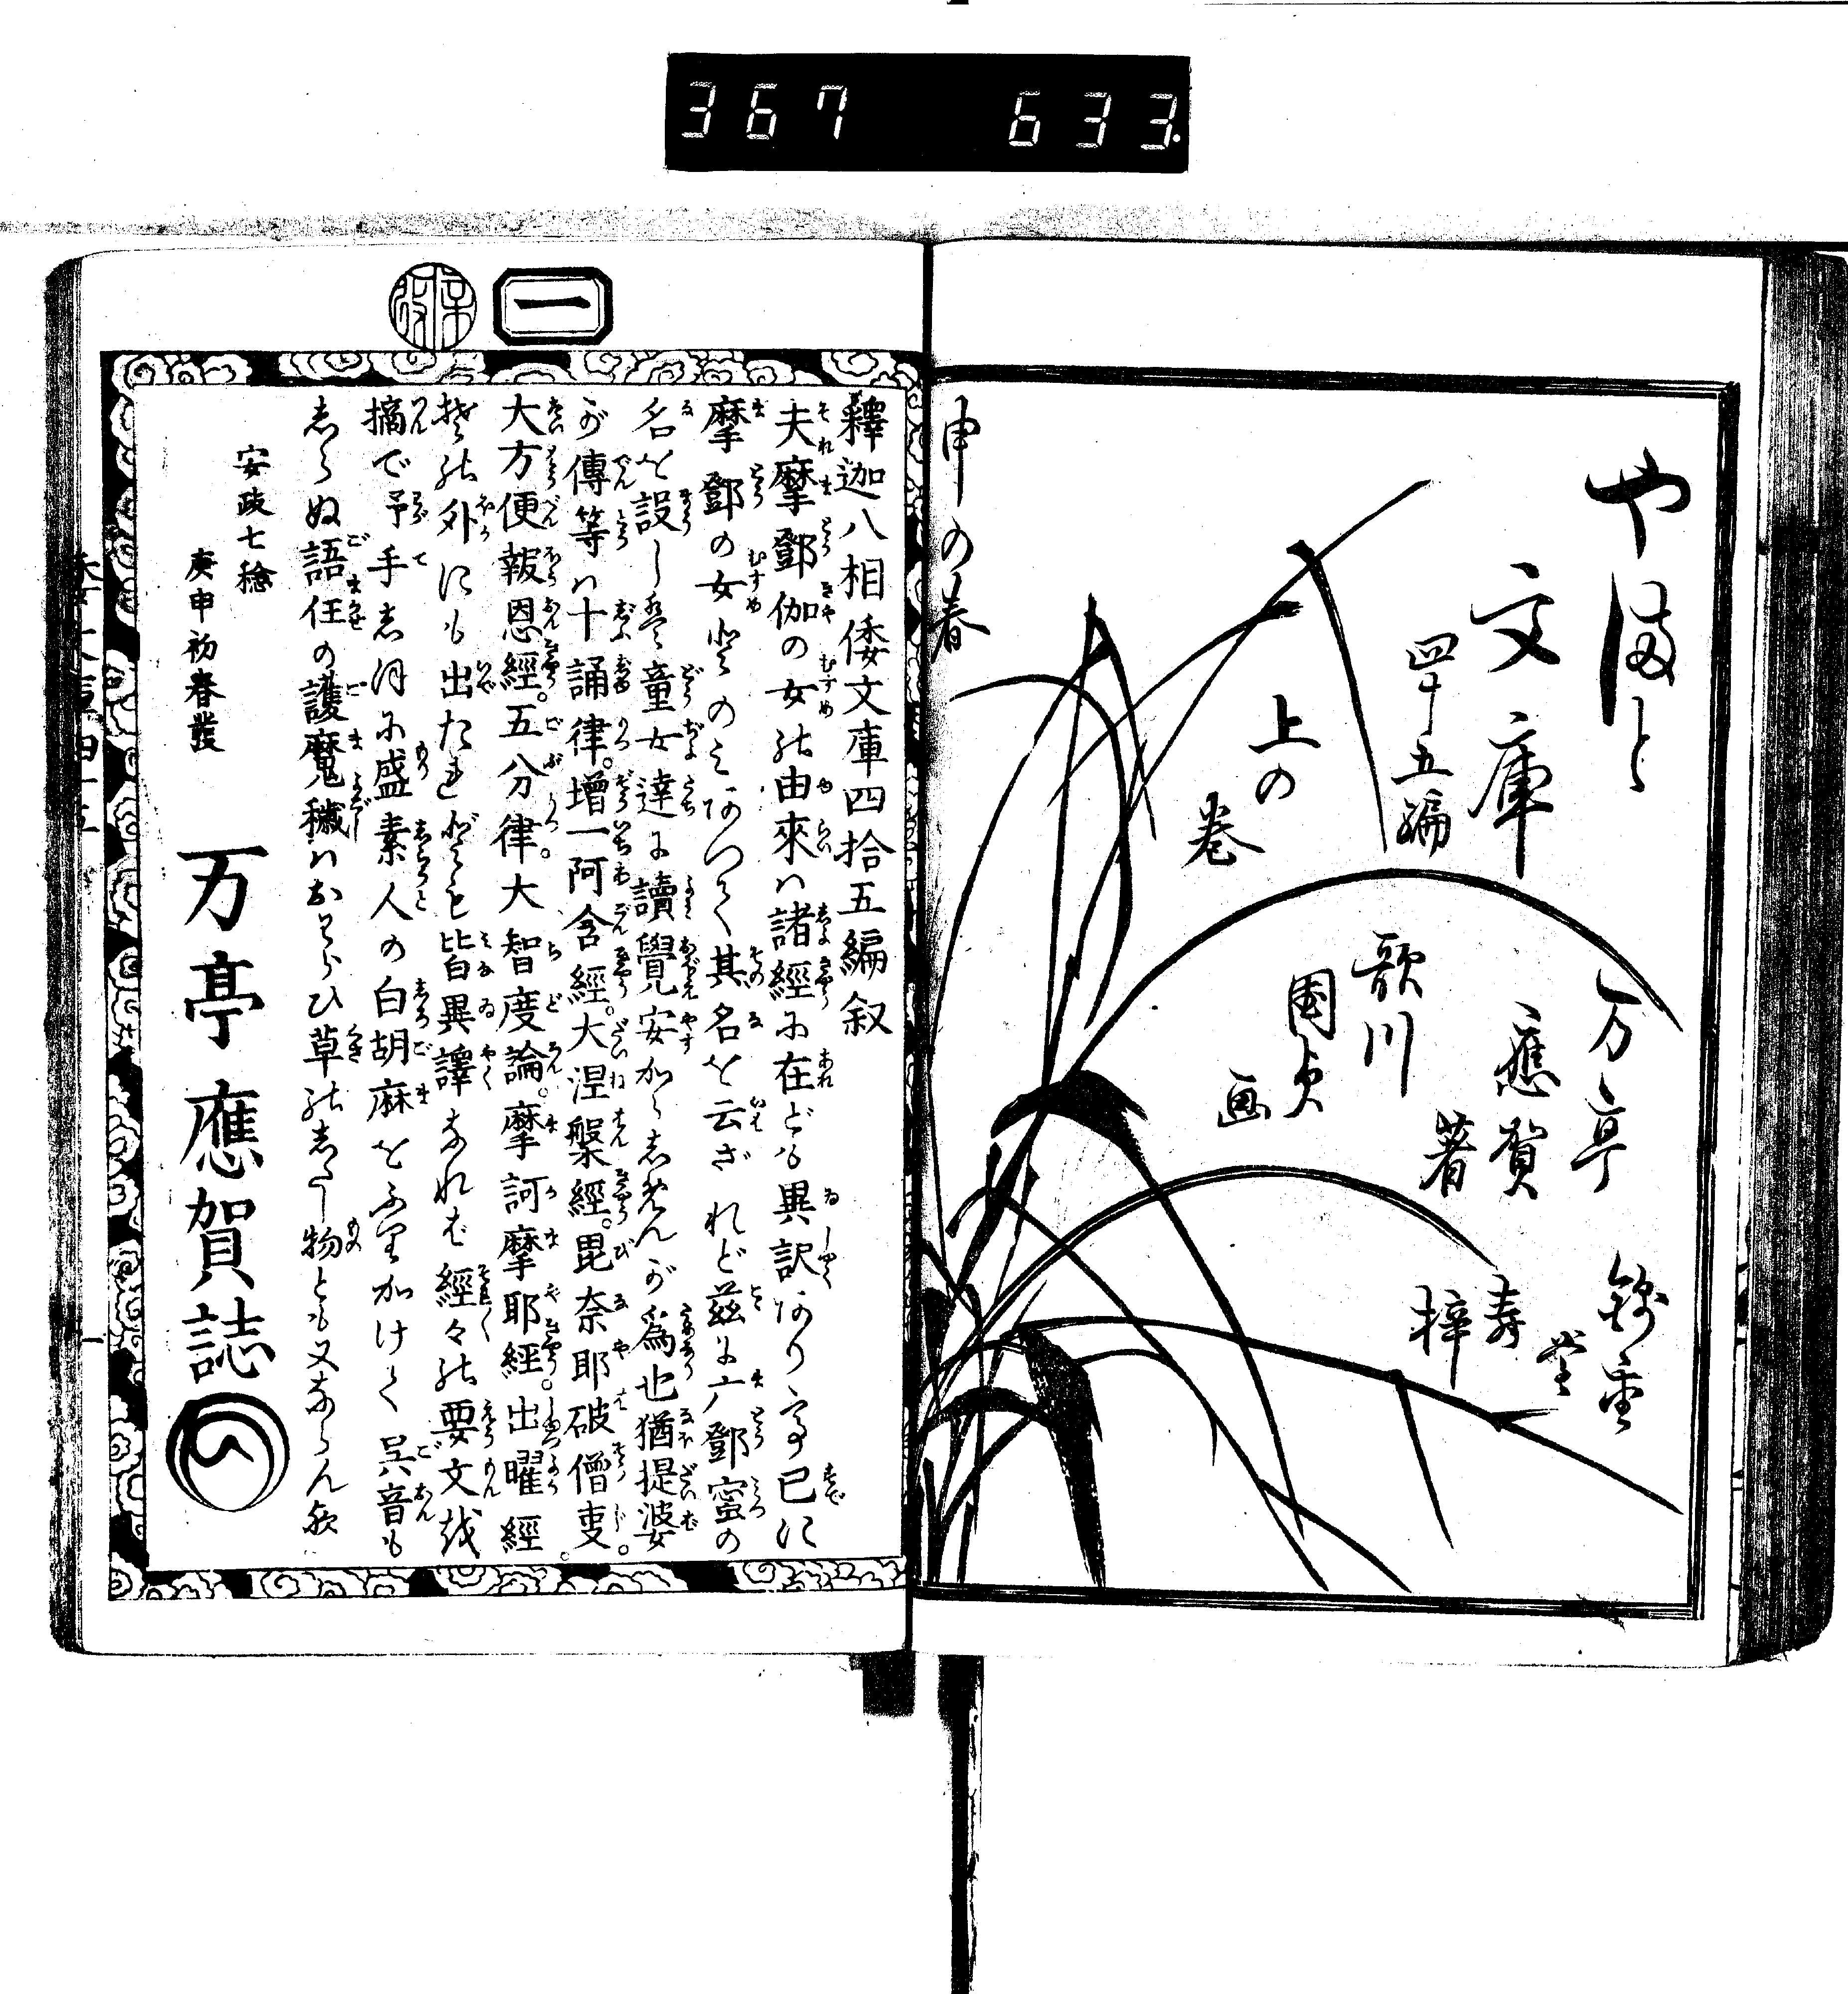 367 633
やまと
文庫
四十五編
上の
巻
万亭
應賀
著
歌川
國貞
画
錦重
堂
寿
梓
申の春
一
釋迦八相倭文庫四拾五編叙
夫摩鄧伽の女の由來ハ諸經に在ども異訳ありて已に
摩鄧の女とのみあつて其名を云ざれど茲に摩鄧蜜の
名を設しハ童女達に讀覺安からしめんが為也猶提婆
が傳等ハ十誦律。增一阿含經。大涅槃經。毘奈耶破僧事。
大方便報恩經。五分律。大智度論。摩訶摩耶經。出曜經
其の外にも出たれども皆異譯なれば經々の要文を
摘で予手しほに盛素人の白胡麻をふり加けて呉音も
しらぬ語任の護魔穢ハおわらひ草のした物とも又ならん歟
安政七稔
庚申初春發
万亭應賀誌